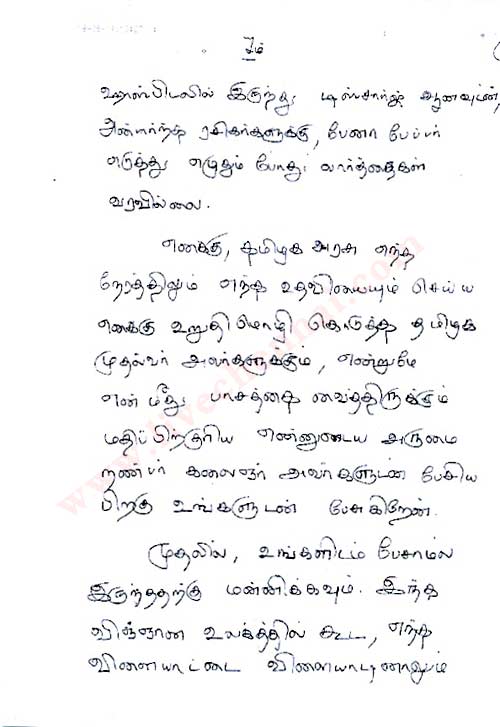 உம்
ஹாஸ்பிடலில் இருந்து டிஸ்சார்ஜ் ஆனவுடன்,
அன்பார்ந்த ரசிகர்களுக்கு, பேனா பேப்பர்
எடுத்து எழுதும் போது வார்த்தைகள்
வரவில்லை.
எனக்கு, தமிழக அரசு எந்த
நேரத்திலும் எந்த உதவியையும் செய்ய
எனக்கு உறுதிமொழி கொடுத்த தமிழக
முதல்வர் அவர்களுக்கும், என்றுமே
என் மீது பாசத்தை வைத்திருக்கும்
மதிப்பிற்குரிய என்னுடைய அருமை
நண்பர் கலைஞர் அவர்களுடன் பேசிய
பிறகு உங்களுடன் பேசுகிறேன்.
முதலில், உங்களிடம் பேசாமல்
இருந்ததற்கு மன்னிக்கவும். இந்த
விஞ்ஞான உலகத்தில் கூட, எந்த
விளையாட்டை விளையாடினாலும்